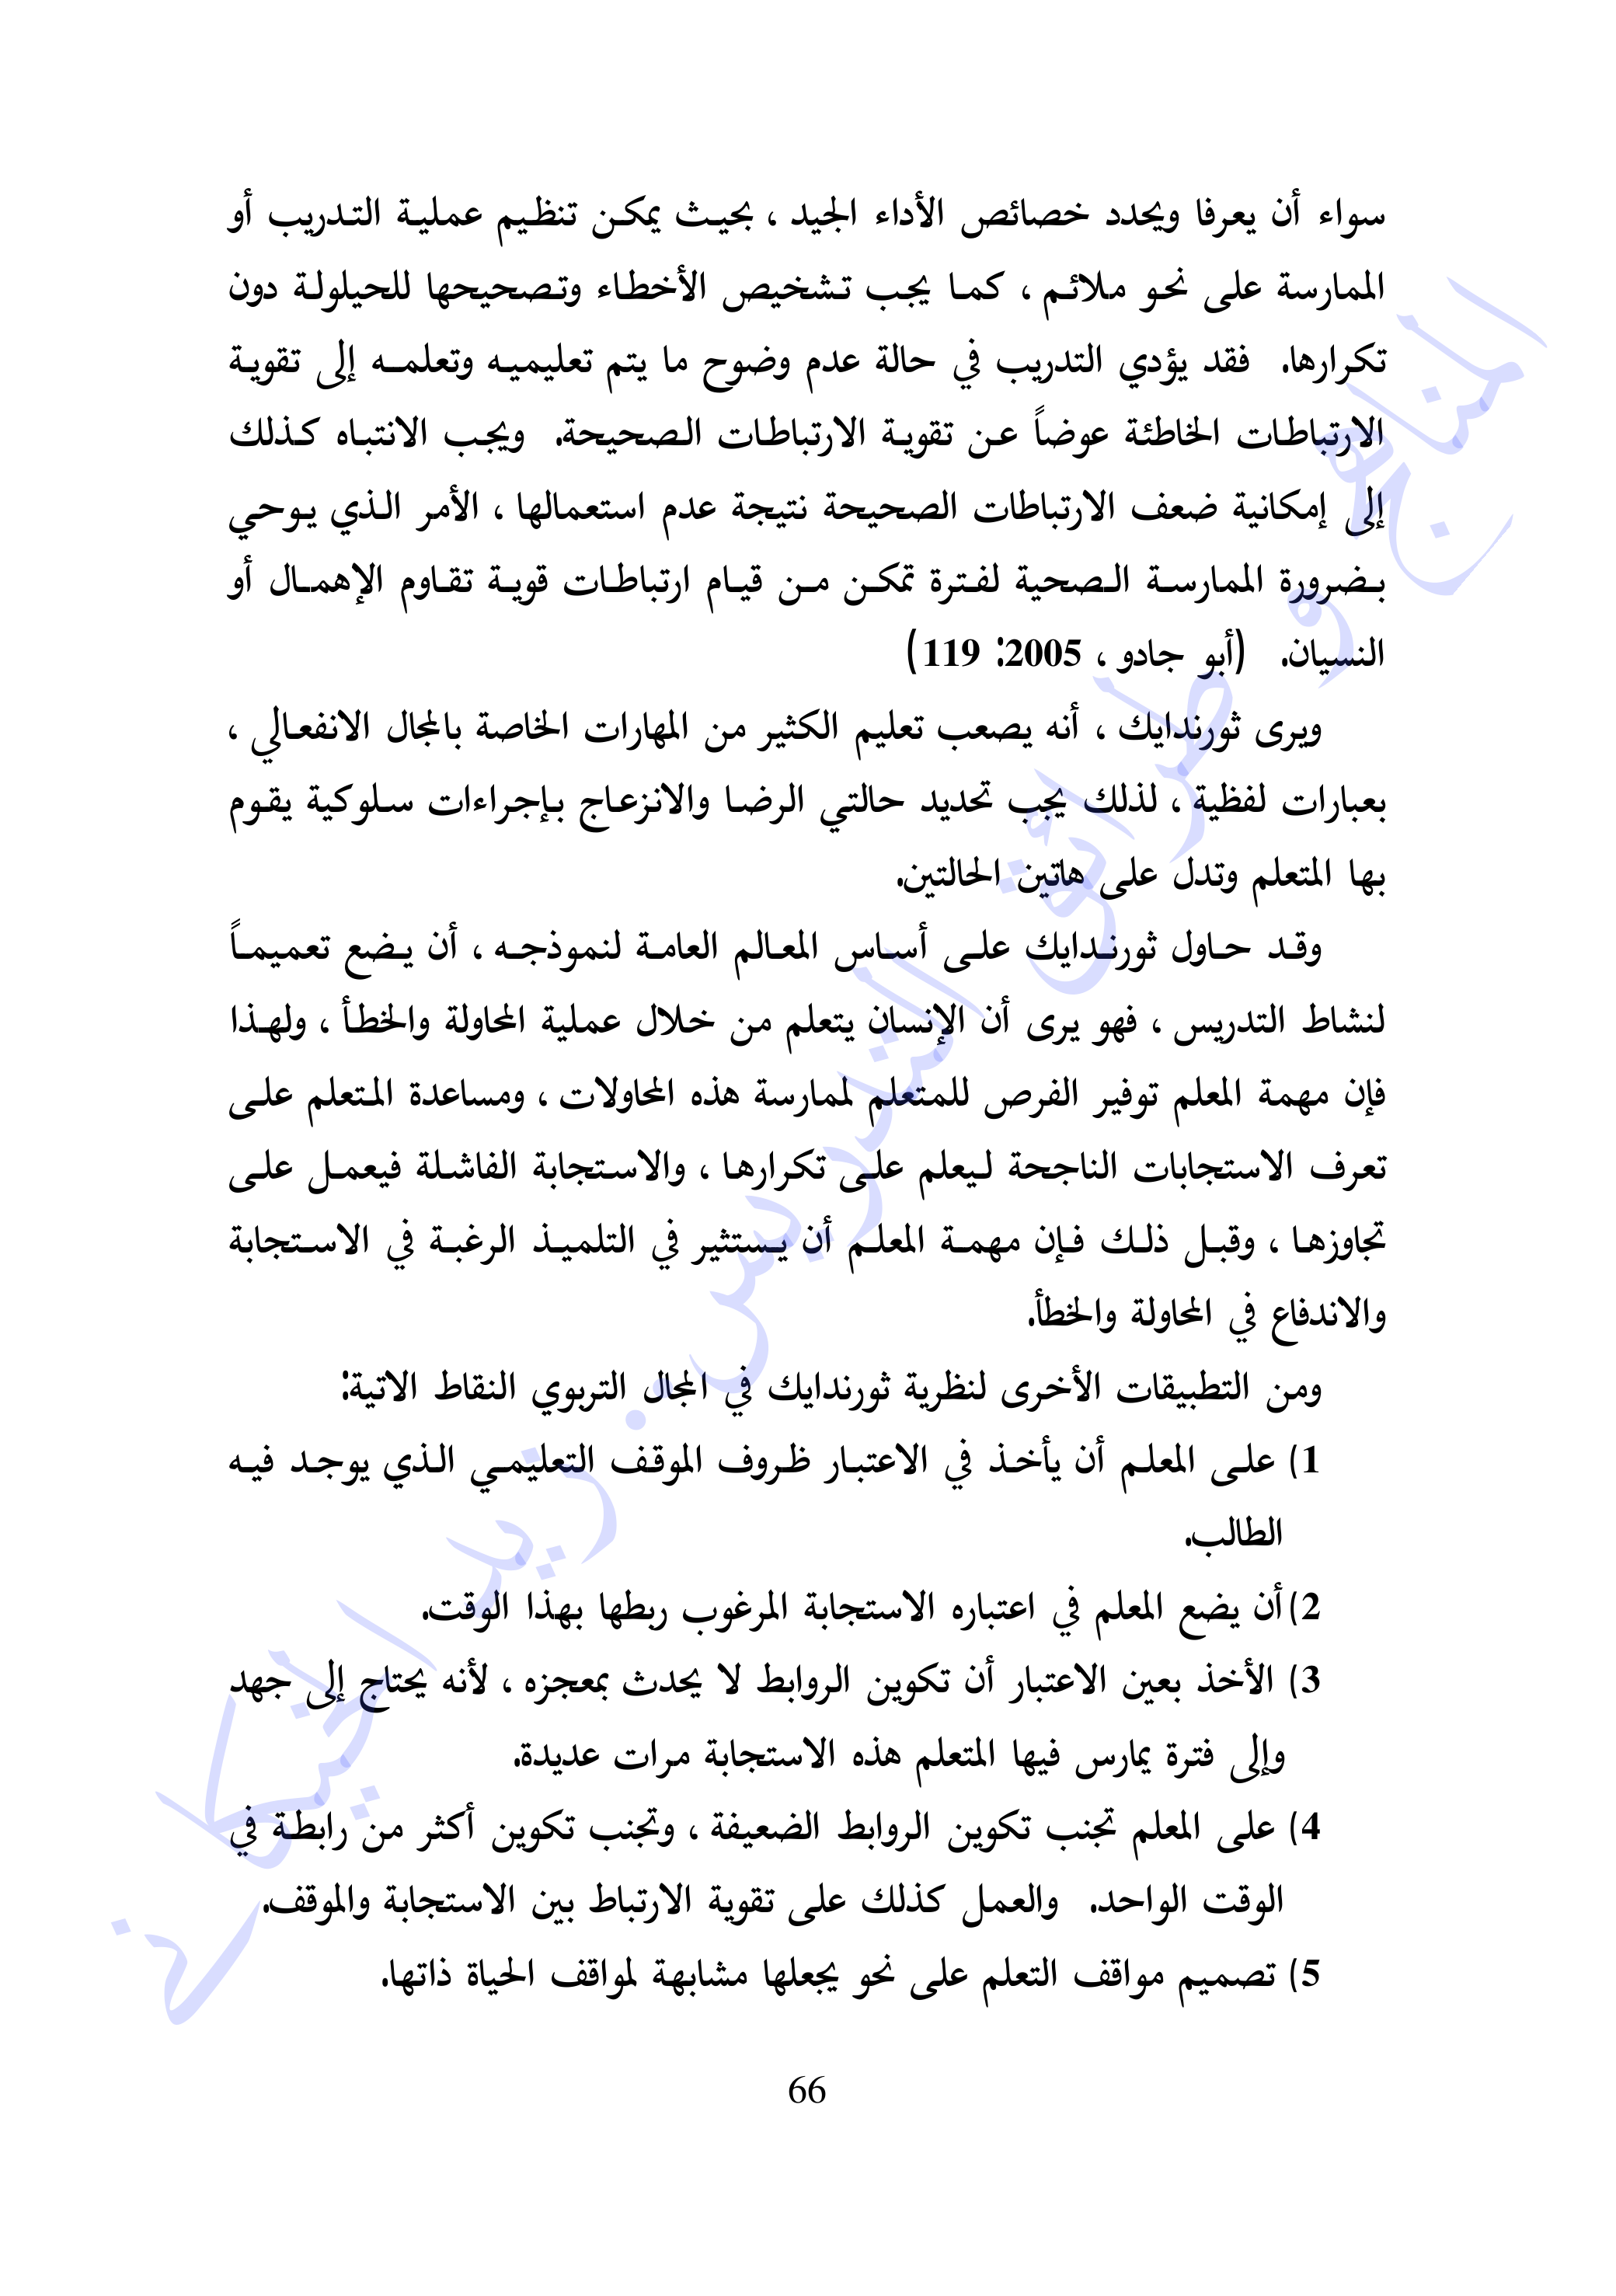 سواء أن يعرفا ويحدد خصائص الأداء الجيد ، بحيث يمكن تنظيم عملية التدريب أو
الممارسة على نحو ملائم ، كما يجب تشخيص الأخطاء وتصحيحها للحيلولة دون
تكرارها. فقد يؤدي التدريب في حالة عدم وضوح ما يتم تعليميه وتعلمه إلى تقوية
الارتباطات الخاطئة عوضاً عن تقوية الارتباطات الصحيحة. ويجب الانتباه كذلك
إلى إمكانية ضعف الارتباطات الصحيحة نتيجة عدم استعمالها ، الأمر الذي يوحي
بضرورة الممارسة الصحية لفترة تمكن من قيام ارتباطات قوية تقاوم الإهمال أو
النسيان. (أبو جادو ، 2005: 119)
ويرى ثورندايك ، أنه يصعب تعليم الكثير من المهارات الخاصة بالمجال الانفعالي ،
بعبارات لفظية ، لذلك يجب تحديد حالتي الرضا والانزعاج بإجراءات سلوكية يقوم
بها المتعلم وتدل على هاتين الحالتين.
وقد حاول ثورندايك على أساس المعالم العامة لنموذجه ، أن يضع تعميماً
لنشاط التدريس ، فهو يرى أن الإنسان يتعلم من خلال عملية المحاولة والخطأ ، ولهذا
فإن مهمة المعلم توفير الفرص للمتعلم لممارسة هذه المحاولات ، ومساعدة المتعلم على
تعرف الاستجابات الناجحة ليعلم على تكرارها ، والاستجابة الفاشلة فيعمل على
تجاوزها ، وقبل ذلك فإن مهمة المعلم أن يستثير في التلميذ الرغبة في الاستجابة
والاندفاع في المحاولة والخطأ.
ومن التطبيقات الأخرى لنظرية ثورندايك في المجال التربوي النقاط الاتية:
1) على المعلم أن يأخذ في الاعتبار ظروف الموقف التعليمي الذي يوجد فيه
الطالب.
2) أن يضع المعلم في اعتباره الاستجابة المرغوب ربطها بهذا الوقت.
3) الأخذ بعين الاعتبار أن تكوين الروابط لا يحدث بمعجزه ، لأنه يحتاج إلى جهد
وإلى فترة يمارس فيها المتعلم هذه الاستجابة مرات عديدة.
4) على المعلم تجنب تكوين الروابط الضعيفة ، وتجنب تكوين أكثر من رابطة في
الوقت الواحد. والعمل كذلك على تقوية الارتباط بين الاستجابة والموقف.
5) تصميم مواقف التعلم على نحو يجعلها مشابهة لمواقف الحياة ذاتها.
66
المناهج و طرائق التدريس . زيد الخيكاني